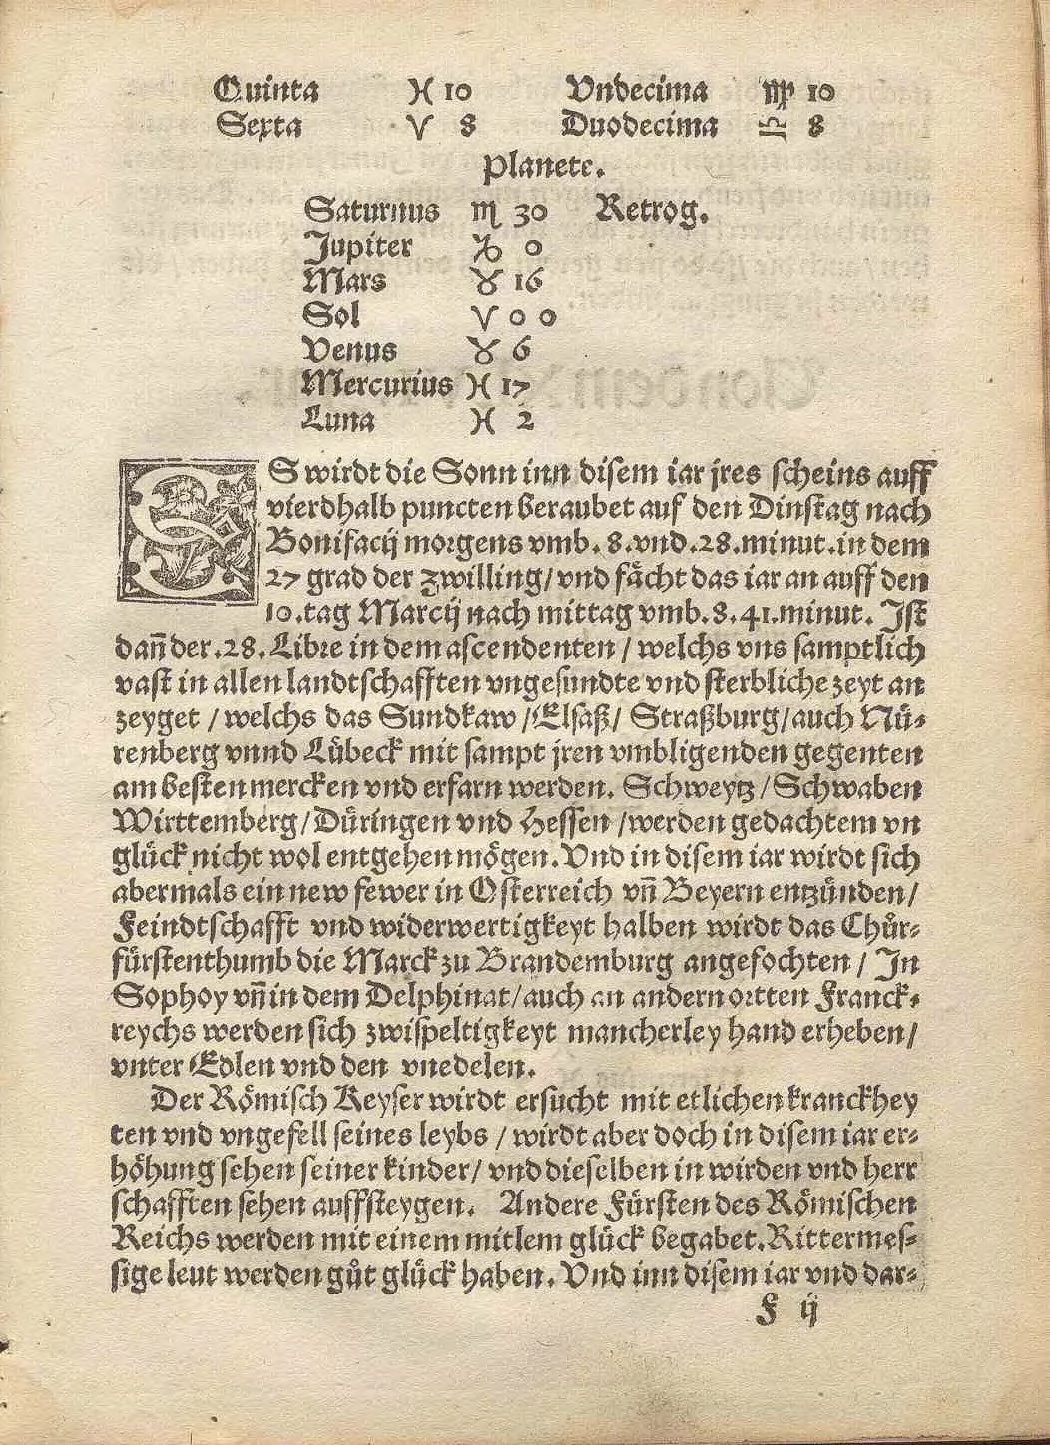 Quinta ♓ 10 Vndecima ♍ 10
Sexta ♈ 8 Duodecima ♎ 8
Planete.
Saturnus ♏ 30 Retrog.
Jupiter ♑ 0
Mars ♉ 16
Sol ♈ 0 0
Venus ♉ 6
Mercurius ♓ 17
Luna ♓ 2
ES wirdt die Sonn inn disem iar jres scheins auff
vierdhalb puncten beraubet auf den Dinstag nach
Bonifacij morgens vmb. 8. vnd. 28. minut. in dem
27 grad der zwilling/ vnd fächt das iar an auff den
10. tag Marcij nach mittag vmb. 8. 41. minut. Jst
dañ der. 28. Libre in dem ascendenten / welchs vns samptlich
vast in allen landtschafften vngesundte vnd sterbliche zeyt an
zeyget / welchs das Sundkaw / Elsaß/ Straßburg/ auch Nü-
renberg vnnd Lübeck mit sampt jren vmbligenden gegenten
am besten mercken vnd erfarn werden. Schweytz / Schwaben
Wirttemberg/ Düringen vnd Hessen / werden gedachtem vn
glück nicht wol entgehen mögen. Vnd in disem iar wirdt sich
abermals ein new fewer in Osterreich vñ Beyern entzünden/
Feindtschafft vnd widerwertigkeyt halben wirdt das Chůr-
fürstenthumb die Marck zu Brandemburg angefochten / Jn
Sophoy vñ in dem Delphinat/ auch an andern ortten Franck-
reychs werden sich zwispeltigkeyt mancherley hand erheben/
vnter Edlen vnd den vnedelen.
Der Römisch Keyser wirdt ersucht mit etlichen kranckhey
ten vnd vngefell seines leybs / wirdt aber doch in disem iar er-
höhung sehen seiner kinder/ vnd dieselben in wirden vnd herr
schafften sehen auffsteygen. Andere Fürsten des Römischen
Reichs werden mit einem mitlem glück begabet. Rittermes-
sige leut werden gůt glück haben. Vnd inn disem iar vnd dar-
F ij